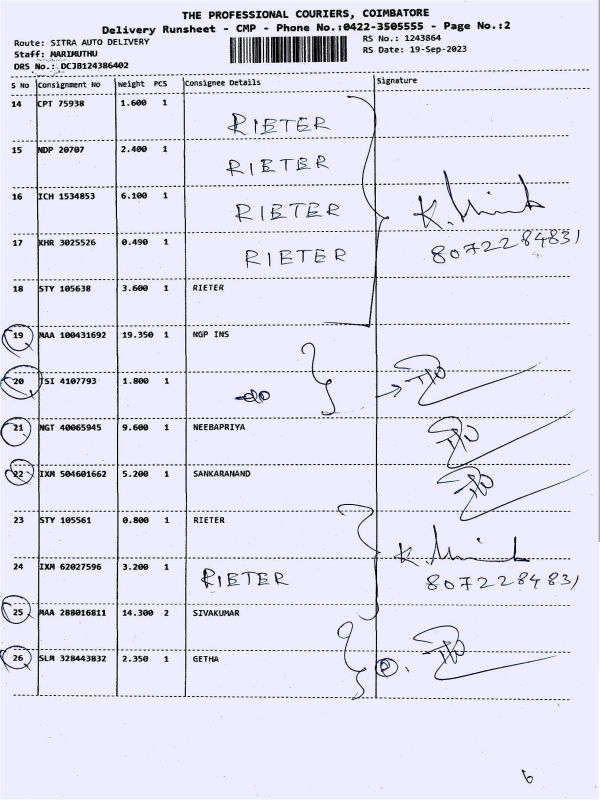 THE PROFESSIONAL COURIERS, COIMBATORE
Delivery Runsheet - CMP - Phone No.:0422-3505555 - Page No.:2
Route: SITRA AUTO DELIVERY
RS No.: 1243864
Staff: MARIMUTHU
RS Date: 19-Sep-2023
DRS No.: DCJB124386402
S No Consignment No Weight PCS Consignee Details Signature
14 CPT 75938 1.600 1 RIETER
15 NDP 20707 2.400 1 RIETER
16 ICH 1534853 6.100 1 RIETER
17 KHR 3025526 0.490 1 RIETER 8072284831
18 STY 105638 3.600 1 RIETER
19 MAA 100431692 19.350 1 NGP INS
20 TSI 4107793 1.800 1
21 NGT 40065945 9.600 1 NEEBAPRIYA
22 IXM 504601662 5.200 1 SANKARANAND
23 STY 105561 0.800 1 RIETER
24 IXM 62027596 3.200 1 RIETER 8072284831
25 MAA 288016811 14.300 2 SIVAKUMAR
26 SLM 328443832 2.350 1 GETHA
6